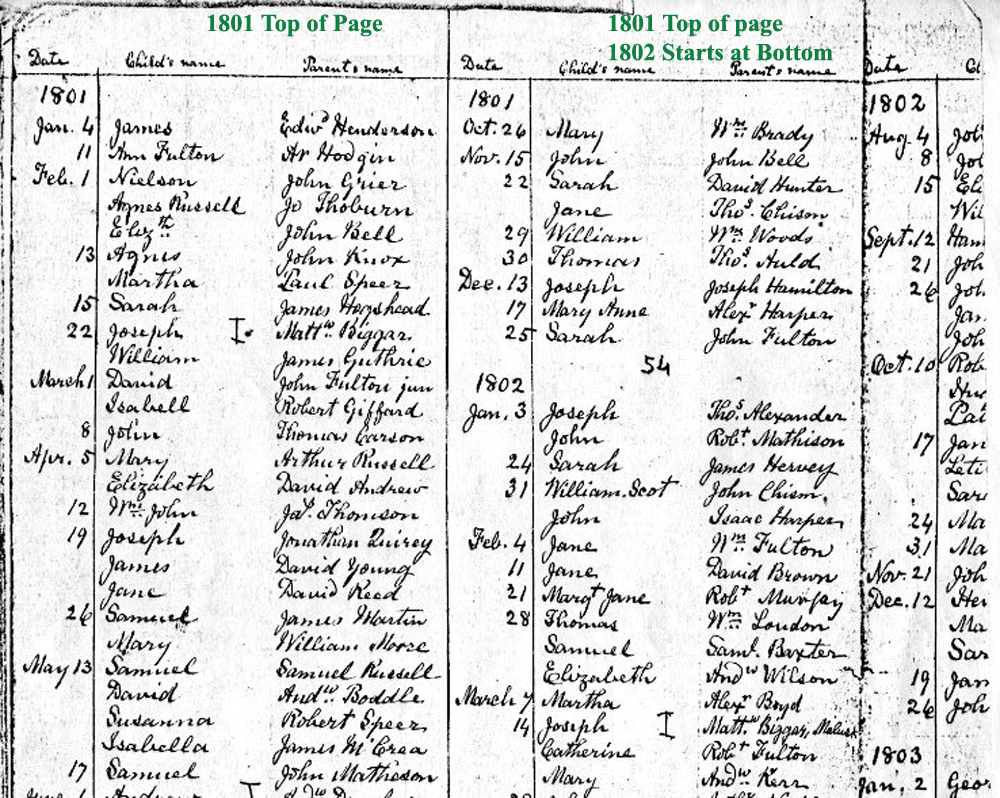 1801 Top of Page
Date Child's name Parent's name
1801
Jan. 4 James Edwd Henderson
11 Ann Fulton Ar Hodgin
Feb. 1 Nielson John Grier
Agnes Russell Jo Thoburn
Elizth John Bell
13 Agnes John Knox
Martha Paul Speer
15 Sarah James Hogshead
22 Joseph I. Mattw Biggar
William James Guthrie
March 1 David John Fulton jun
Isabell Robert Giffard
8 John Thomas Carson
Apr. 5 Mary Arthur Russell
Elizabeth David Andrew
12 Wm John Jas. Thomson
19 Joseph Jonathan Quirey
James David Young
Jane David Reed
26 Samuel James Martin
Mary William Moore
May 13 Samuel Samuel Russell
David Andw. Boddle
Susanna Robert Speer
Isabella James McCrea
17 Samuel John Matheson
June 1 Andrew
1801 Top of page
1802 Starts at Bottom
Date Child's name Parent's name
1801
Oct. 26 Mary Wm Brady
Nov. 15 John John Bell
22 Sarah David Hunter
Jane Thos. Chison
29 William Wm Woods
30 Thomas Thos. Auld
Dec. 13 Joseph Joseph Hamilton
17 Mary Anne Alexr Harper
25 Sarah John Fulton
54
1802
Jan. 3 Joseph Thos. Alexander
John Robt Mathison
24 Sarah James Hervey
31 William Scot John Chism.
John Isaac Harper
Feb. 4 Jane Wm Fulton
11 Jane David Brown
21 Margt Jane Robt
28 Thomas Wm Loudon
Samuel Saml. Baxter
Elizabeth Andw Wilson
March 7 Martha Alexr Boyd
14 Joseph I Mattw Biggar,
Catherine Robt Fulton
Mary Andw Kerr
Date
1802
Aug. 4 Joh
8 Joh
15 Eli
Wil
Sept. 12 Ham
21 Joh
26 Joh
Jan
Joh
Oct. 10 Rob
17 Jan
Leti
Sar
24 Ma
31 Ma
Nov. 21 Joh
Dec. 12 Hen
Ma
Sar
19 Jan
26 Joh
1803
Jan. 2 Geo